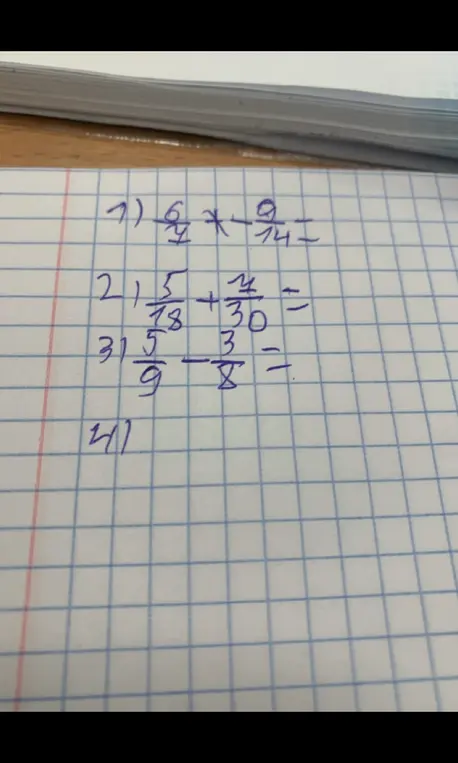 1) 6/7 * - 9/14 =
2) 5/18 + 7/30 =
3) 5/9 - 3/8 =
4)